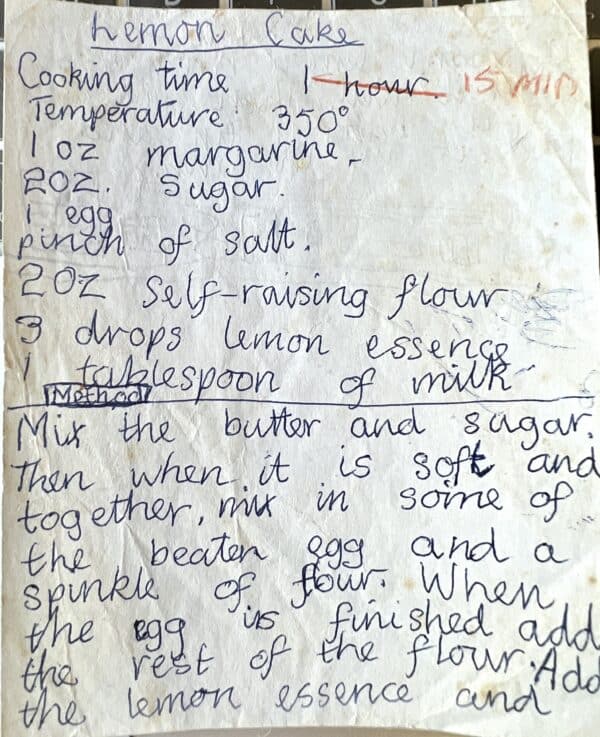 Lemon Cake
Cooking time 1 hour. 15 MIN
Temperature: 350°
1 oz margarine.
2oz. sugar.
1 egg
pinch of salt.
2oz self-raising flour
3 drops lemon essence
1 tablespoon of milk
Method
Mix the butter and sugar.
Then when it is soft and
together, mix in some of
the beaten egg and a
spinkle of flour. When
the egg is finished add
the rest of the flour. Add
the lemon essence and